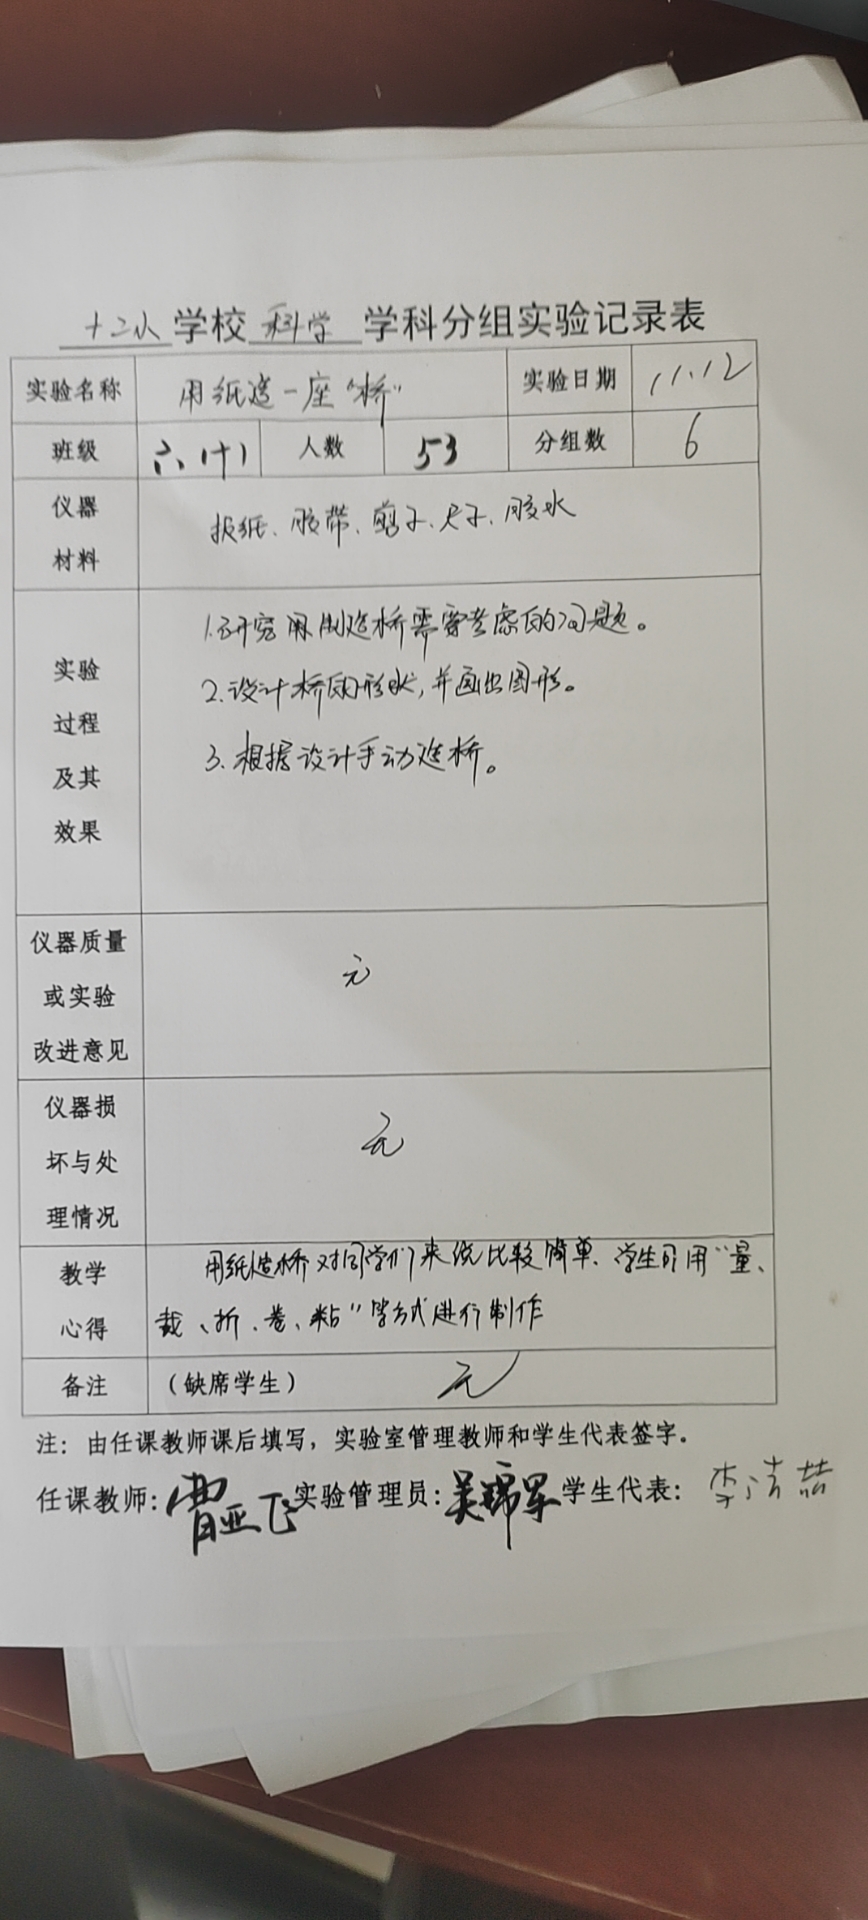 十二小学校科学学科分组实验记录表
实验名称 用纸造一座“桥” 实验日期 11.12
班级 六(十) 人数 53 分组数 6
仪器
材料
报纸、胶带、剪子、尺子、胶水
实验
过程
及其
效果
1.研究用制造桥需要考虑的问题。
2.设计桥的形状,并画出图形。
3.根据设计手动造桥。
仪器质量
或实验
改进意见
无
仪器损
坏与处
理情况
无
教学
心得
用纸造桥对同学们来说比较简单、学生可用“量、
裁、折、卷、粘”等方式进行制作
备注 (缺席学生) 无
注: 由任课教师课后填写,实验室管理教师和学生代表签字。
任课教师: 曹亚飞 实验管理员: 吴锦军 学生代表: 李清喆